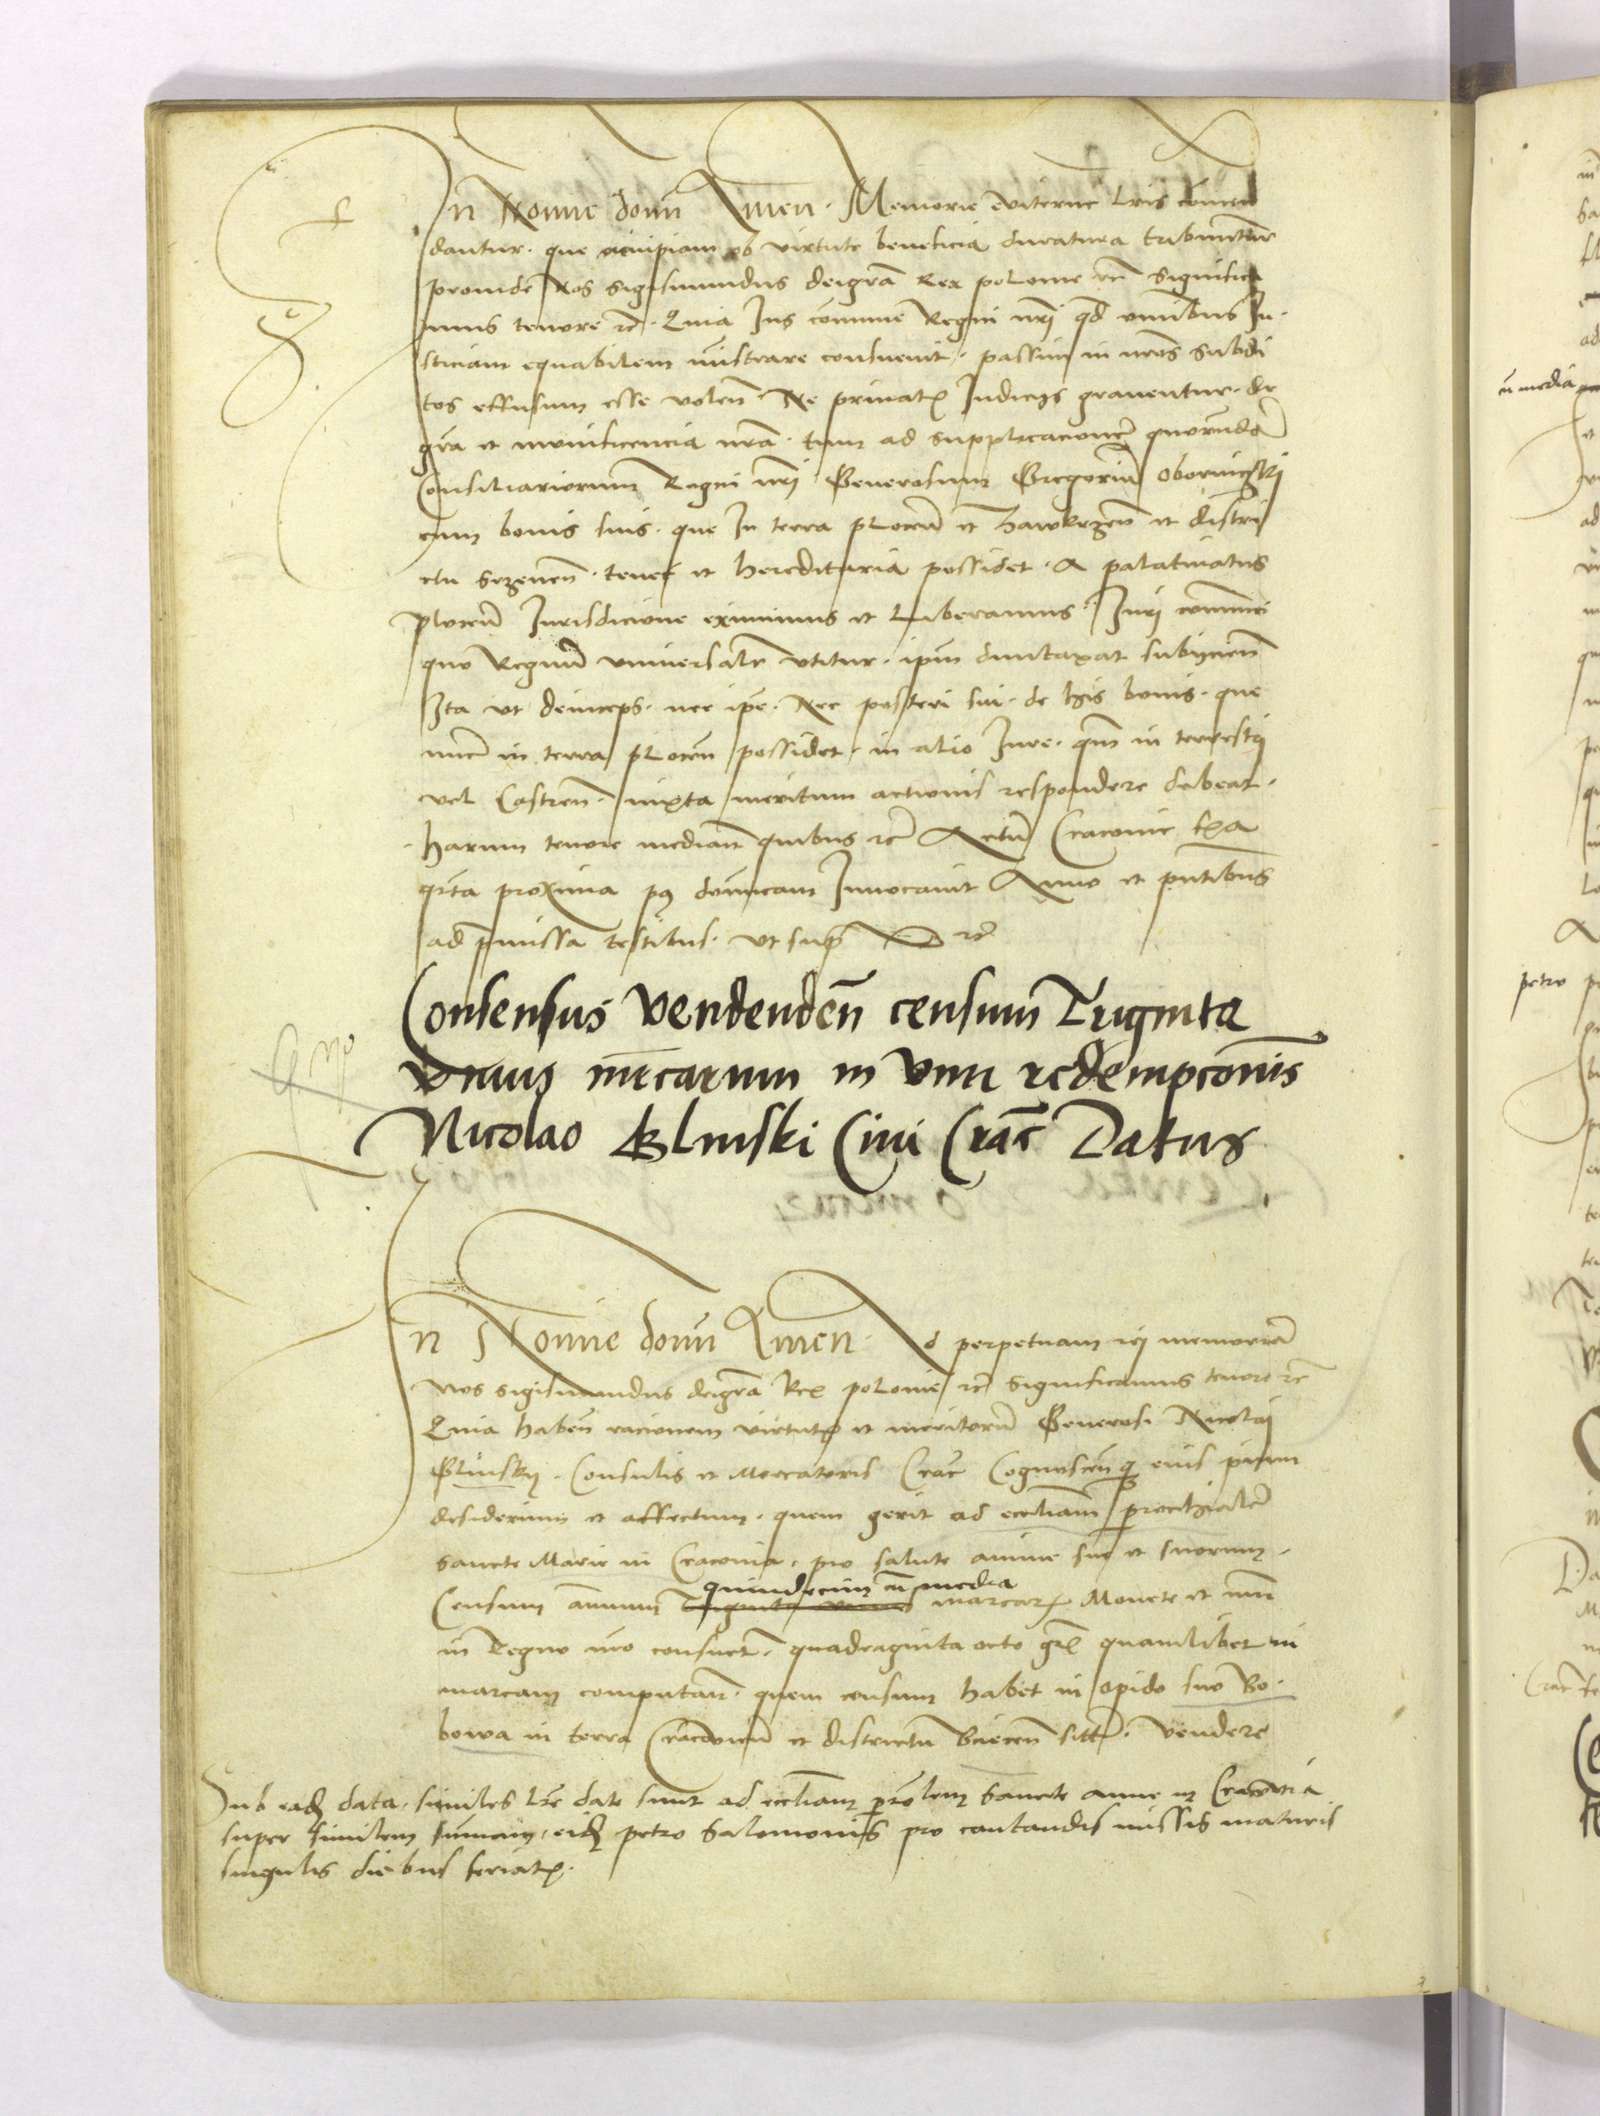 In Nomine domini Amen. Memorie eviterne lris comen
dantur. que accipiam ob virtute beneficia duratura tribuuntur
proinde Nos Sigismundus deigra Rex polonie etc Significa
mus tenore etc. Quia Ius comune Regni nri qd omnibus Iu-
sticiam equabilem mistrare consuevit. passim in nros subdi
tos effusum esse volen Ne privatis Iudicijs graventur. de
gra et munificencia nra. tum ad supplicacionem quorundam
Consiliariorum Regni nri Generosum Gregoriu
cum bonis suis. que In terra plocen et et distri
ctu tenet et hereditaria possidet. A palatinatus
plocen Iurisdicione eximimus et Liberamus. Iuri comuni
quo Regnum universale utitur. ipm duntaxat subijcien
Ita ut deinceps. nec ipe. Nec posteri sui. de his bonis. que
nunc in terra plocen possidet. in alio Iure. qm in terrestri
vel Castren. iuxta meritum actionis respondere debeat.
harum tenore median quibus etc Actu Cracovie fexa
qrta proxima p9 dominicam Invocavit Anno et pntibus
ad pmissa testibus. ut sup etc
Consensus Vendenden censum Triginta
unius mrcarum in vim redempcionis
Nicolao Glinski Civi Crac Datus
In Nomine domini Amen. Ad perpetuam rei memoria
Nos Sigismundus deigra Rex polonie etc significamus tenore etc
Quia haben racionem virtutu et meritoru Generosi Nicolai
Glinskij. Consulis et Mercatoris Crac Cognoscenq eius pium
desiderium et affectum. quem gerit ad eccliam parochiale
Sancte Marie in Cracovia. pro salute anime sue et suorum.
quindecim cu media
Censum annuum Triginta unius marcar Monete et nui
in Regno nro consuet. quadraginta octo gr quamlibet in
marcam computan. quem censum habet in opido suo Bo-
bowa in terra Cracovien et districtu Biecen sitt. Vendere
Sub eadem data. similes lre date sunt ad eccliam prolem sancte anne in Cracovia
super similem summam, eid petro Salomonis pro cantandis missis maturis
singulis diebus feriat.